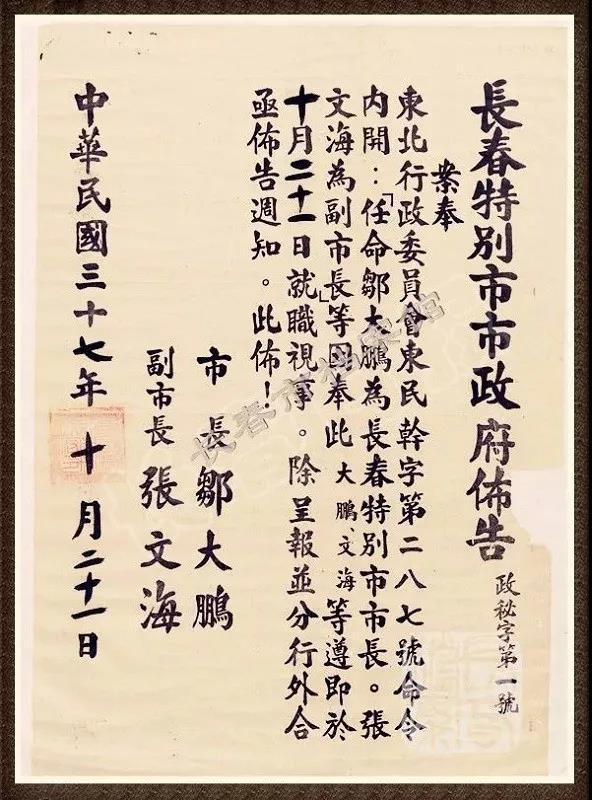 長春特別市市政府佈告
政秘字第一號
案奉
東北行政委員會東民幹字第二八七號命令
内開：「任命鄒大鵬為長春特別市市長。張
文海為副市長」等因奉此大鵬、文海等遵即於
十月二十一日就職視事。除呈報並分行外合
亟佈告週知。此佈！
市長鄒大鵬
副市長張文海
中華民國三十七年十月二十一日